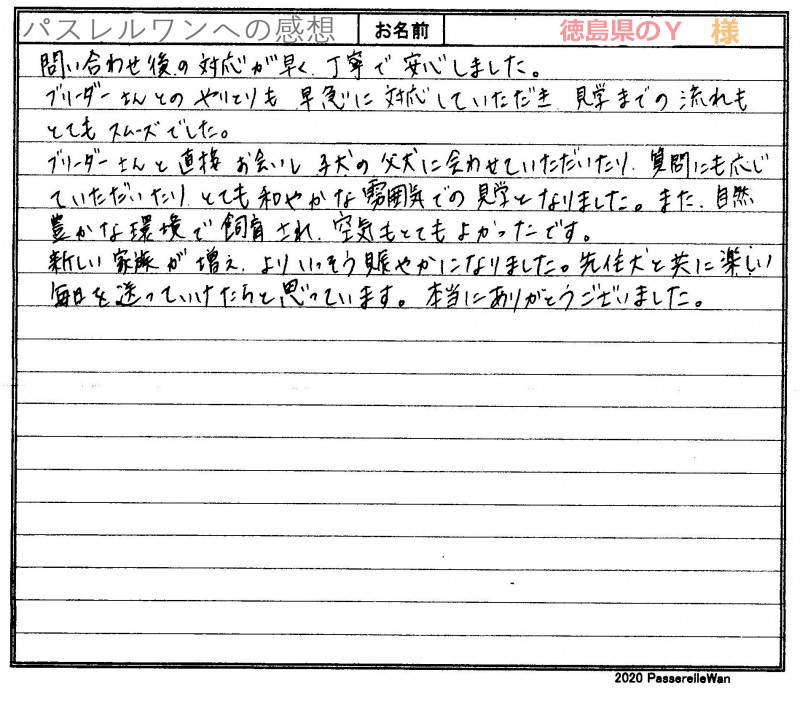 パスレルワンへの感想 お名前 徳島県のY 様
問い合わせ後の対応が早く、丁寧で安心しました。
ブリーダーさんとのやりとりも早急に対応していただき見学までの流れも
とてもスムーズでした。
ブリーダーさんと直接お会いし子犬の父犬に会わせていただいたり、質問にも応じ
ていただいたり、とても和やかな雰囲気での見学となりました。また、自然
豊かな環境で飼育され、空気もとてもよかったです。
新しい家族が増え、よりいっそう賑やかになりました。先住犬と共に楽しい
毎日を送っていけたらと思っています。本当にありがとうございました。
2020 PasserelleWan